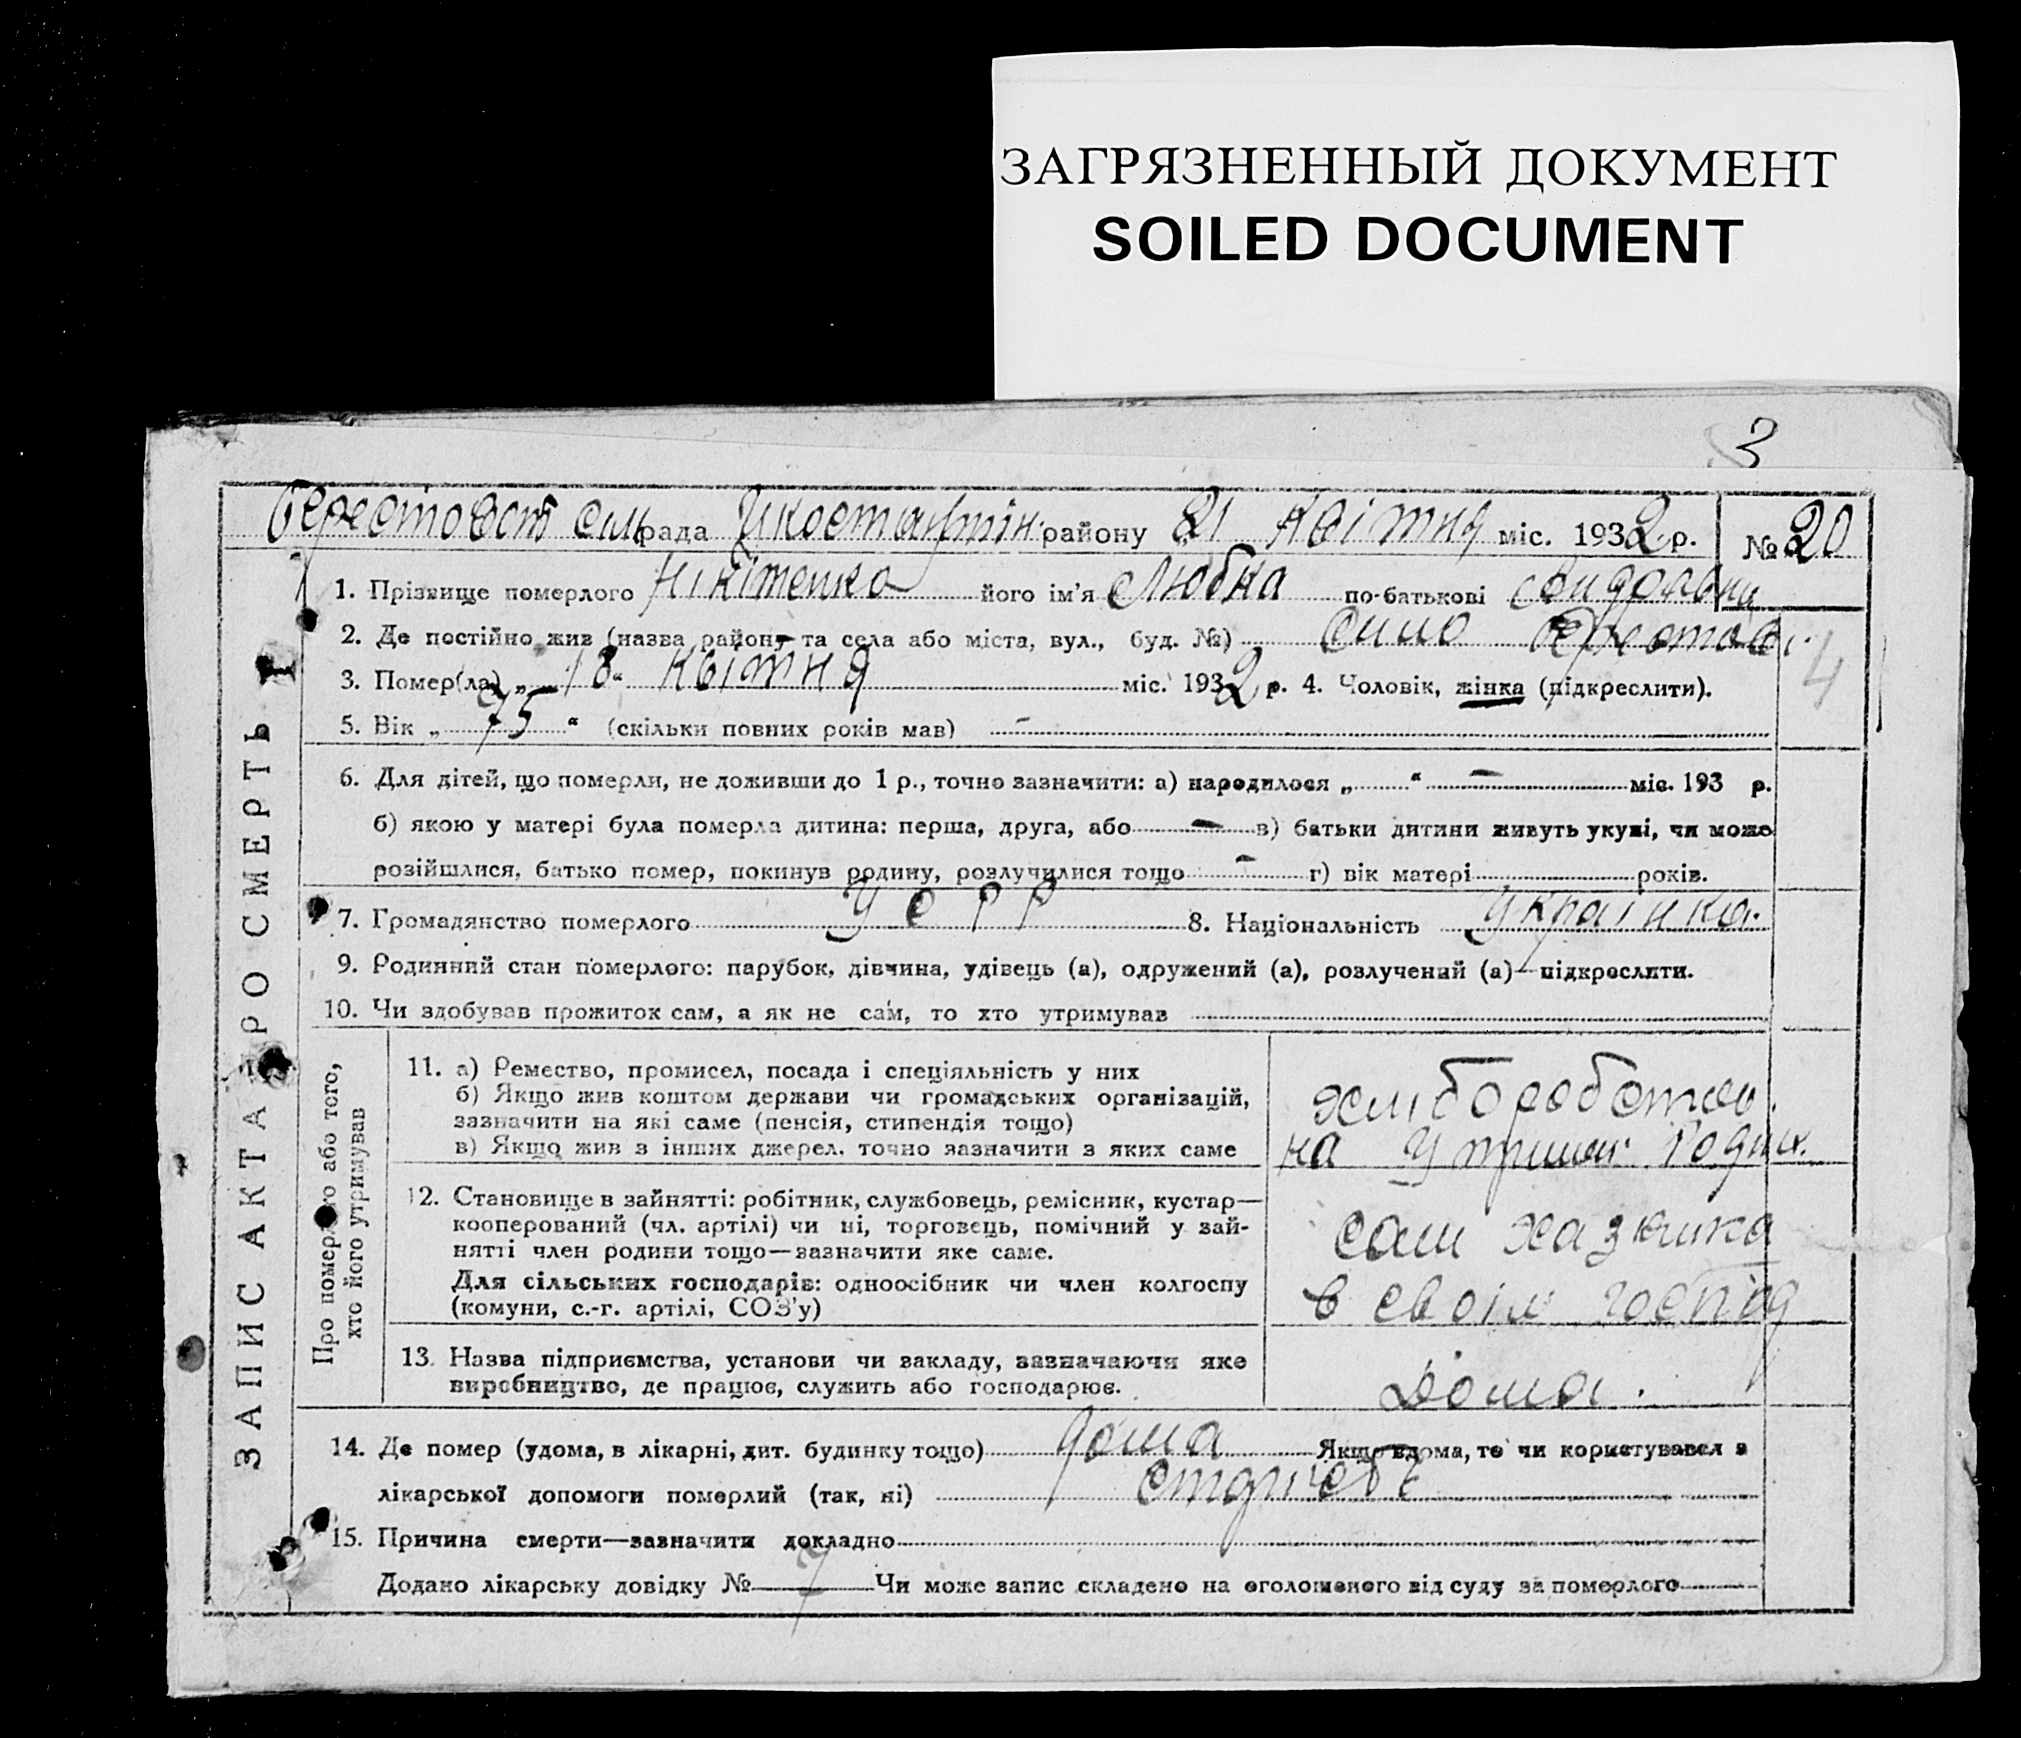 ЗАГРЯЗНЕННЫЙ ДОКУМЕНТ
SOILED DOCUMENT
3
Берестовест сільрада району 21 Квітня міс. 1932 р. № 20
1. Прізвище померлого Нікітенко його ім'я Любка по-батькові
2. Де постійно жив (назва району та села або міста, вул., буд. №) Село
3. Помер(ла) „18“ Квітня міс. 1932 р. 4. Чоловік, жінка (підкреслити).
4
5. Вік „75“ (скільки повних років мав) –
6. Для дітей, що померли, не доживши до 1 р., точно зазначити: а) народилося „ “ – міс. 193 р.
б) якою у матері була померла дитина: перша, друга, або – в) батьки дитини живуть укупі, чи може
розійшлися, батько помер, покинув родину, розлучилися тощо – г) вік матері років.
7. Громадянство померлого УСРР 8. Національність Українка.
9. Родинний стан померлого: парубок, дівчина, удівець (а), одружений (а), розлучений (а)—підкреслити.
10. Чи здобував прожиток сам, а як не сам, то хто утримував
ЗАПИС АКТА ПРО СМЕРТЬ
Про померлого або того,
хто його утримував
11. а) Ремество, промисел, посада і спеціяльність у них
б) Якщо жив коштом держави чи громадських організацій,
зазначити на які саме (пенсія, стипендія тощо)
в) Якщо жив з інших джерел, точно зазначити з яких саме
на Родин.
12. Становище в зайнятті: робітник, службовець, ремісник, кустар—
кооперований (чл. артілі) чи ні, торговець, помічний у зай-
нятті член родини тощо—зазначити яке саме.
Для сільських господарів: одноосібник чи член колгоспу
(комуни, с.-г. артілі, СОЗ'у)
сам хазяика
в своім господ
13. Назва підприємства, установи чи закладу, зазначаючи яке
виробництво, де працює, служить або господарює.
Дома.
14. Де помер (удома, в лікарні, дит. будинку тощо) дома Якщо вдома, то чи користувався з
лікарської допомоги померлий (так, ні)
15. Причина смерти—зазначити докладно
Додано лікарську довідку № 7 Чи може запис складено на оголошеного від суду за померлого